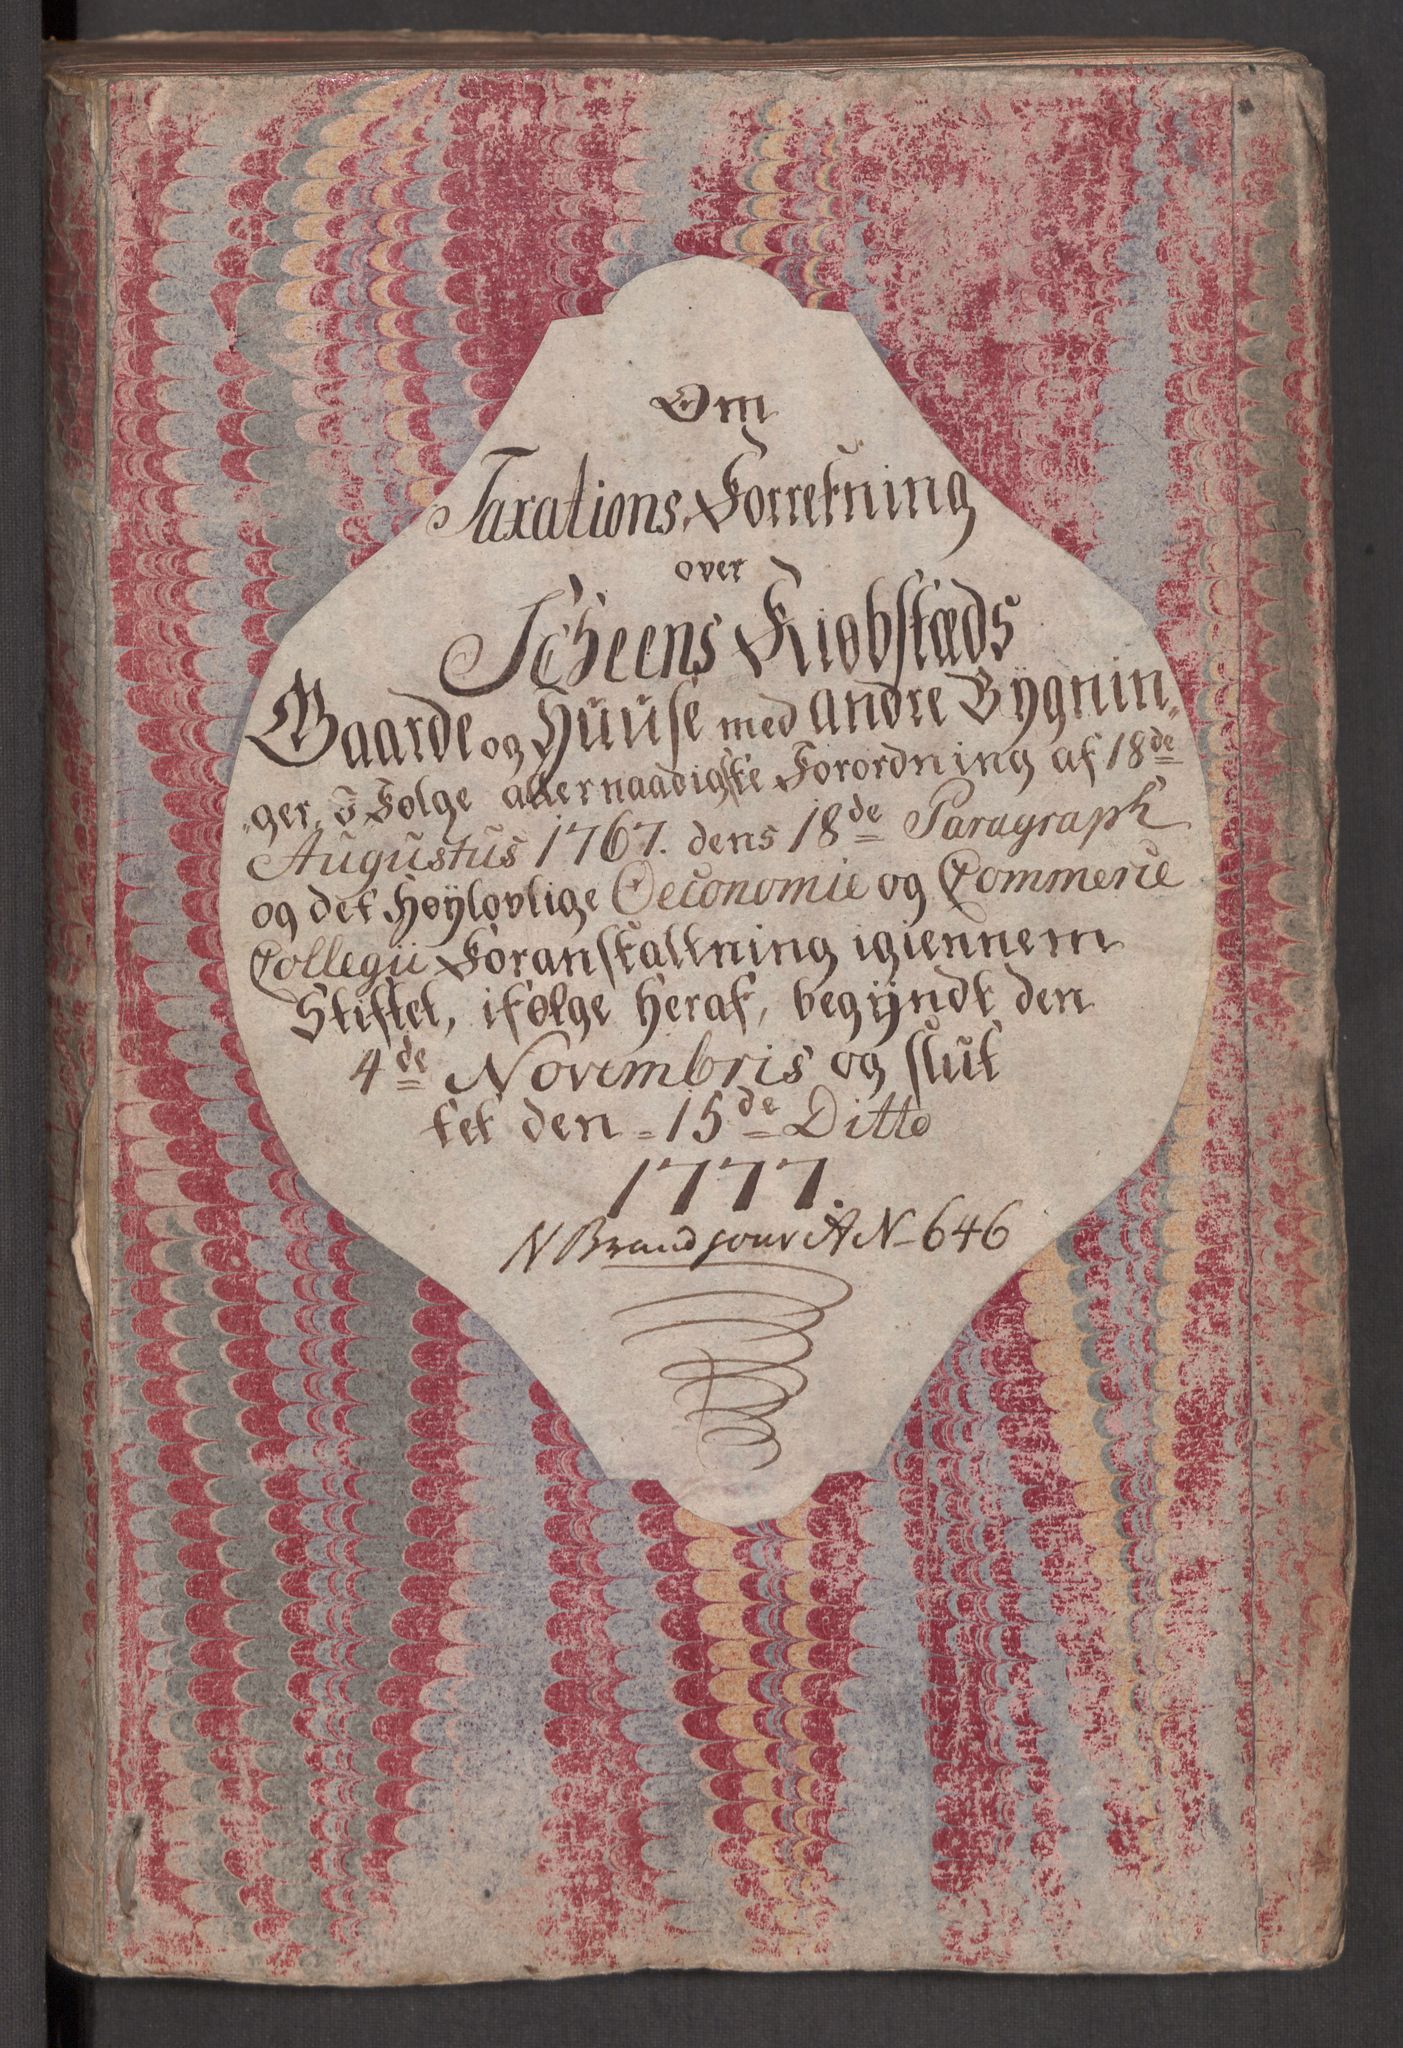 Om
Taxations Forretning
over
Scheens Kiøbstæds
Gaarde og Huuse med andre Bygnin„
„ger, I Følge allernaadigste Forordning af 18de
Augustus 1767. dens 18de Paragraph
og det Høylovlige Oeconomie og Commerce
Collegii Foranstaltning igiennem
Stiftet, ifølge heraf, begÿndt den
4de Novembris og slut
tet den 15de Ditto
1777.
N Brand jour A No 646